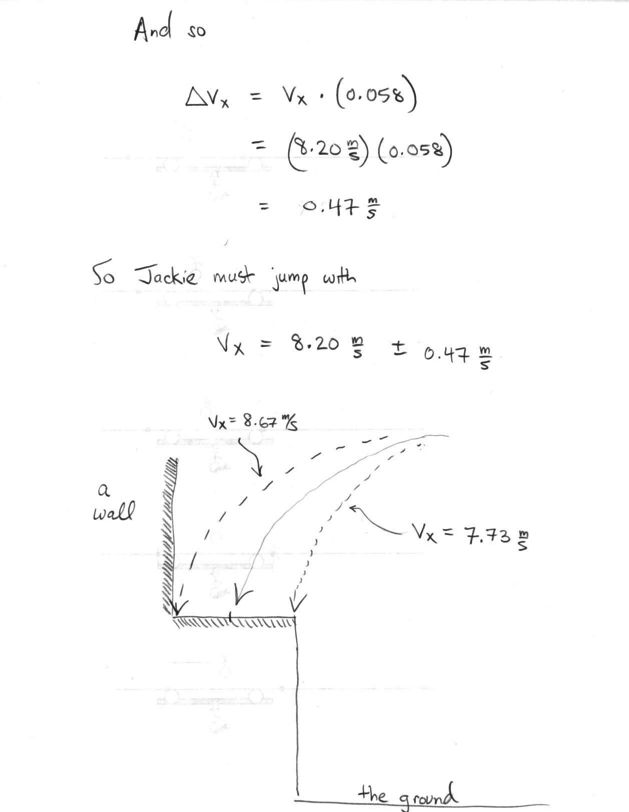 And so
ΔVx = Vx · (0.058)
= (8.20 m/s) (0.058)
= 0.47 m/s
So Jackie must jump with
Vx = 8.20 m/s ± 0.47 m/s
Vx = 8.67 m/s
a
wall
Vx = 7.73 m/s
the ground